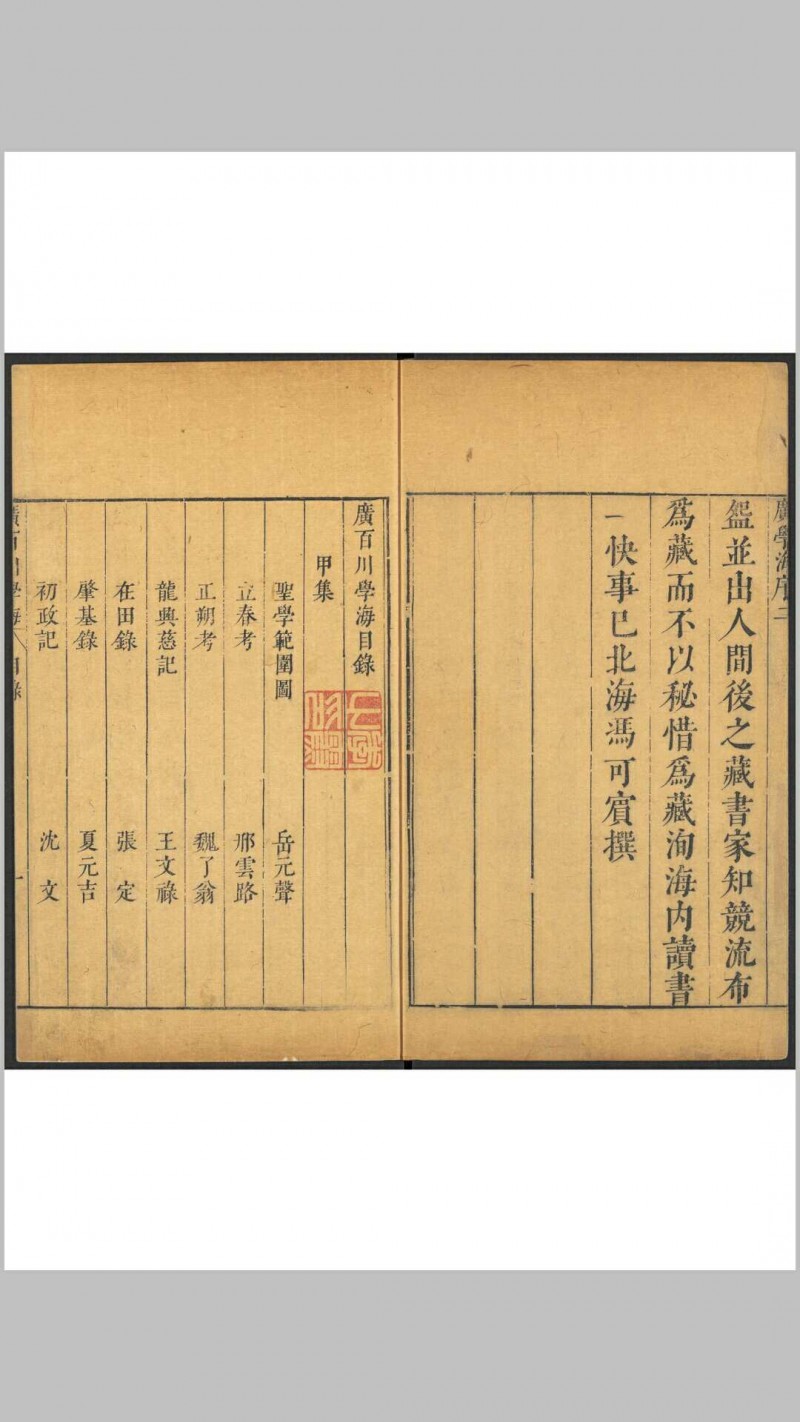 廣學海序 二
盌並出人間後之藏書家知競流布
爲藏而不以秘惜爲藏洵海内讀書
一快事已北海馮可賓撰
廣百川學海目錄
甲集
聖學範圍圖 岳元聲
立春考 邢雲路
正朔考 魏了翁
龍興慈記 王文祿
在田錄 張定
肇基錄 夏元吉
初政記 沈文
廣百川學海 目錄 一